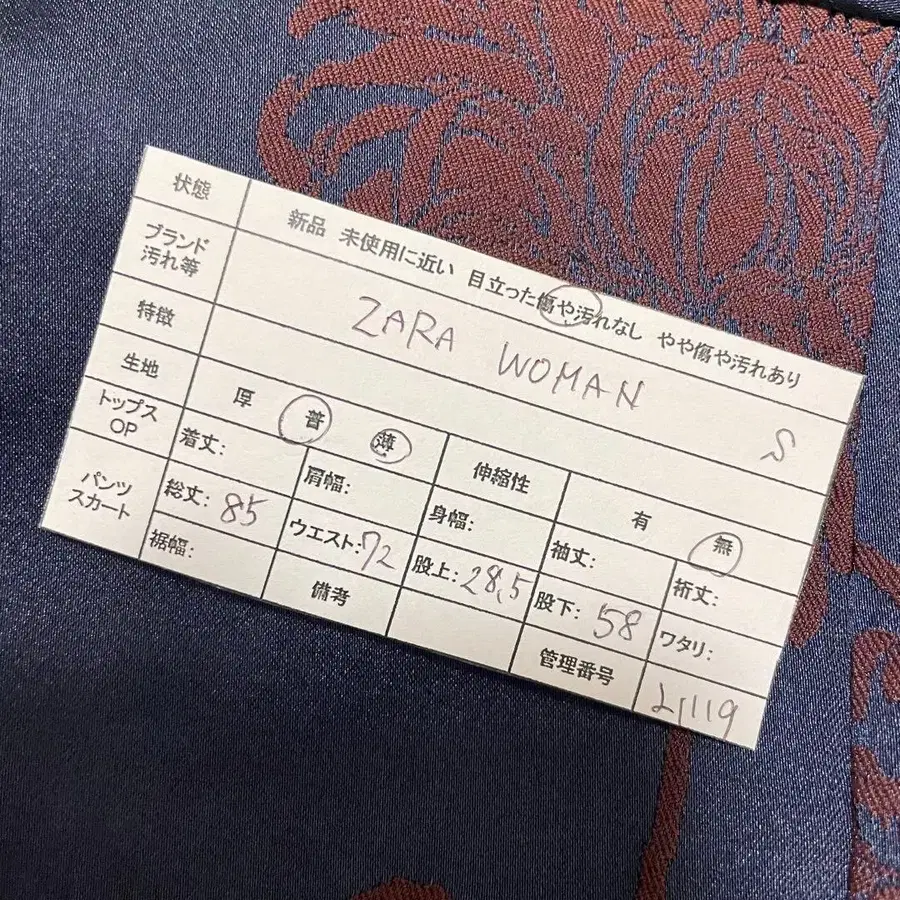 状態 新品 未使用に近い 目立った傷や汚れなし やや傷や汚れあり
ブランド ZARA WOMAN S
汚れ等
特徴
生地 厚 普 薄 伸縮性 有 無
トップス OP 着丈: 肩幅: 身幅: 袖丈: 裄丈:
パンツ スカート 総丈: 85 ウエスト: 72 股上: 28.5 股下: 58 ワタリ:
裾幅: 備考 管理番号 21119